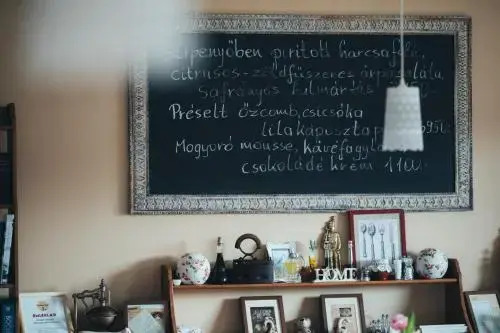 Serpenyőben pirított harcsafilé,
citrusos-zöldfűszeres árpasaláta,
sáfrányos tilmártás
Préselt őzcomb, csicsóka
lilakáposzta p 3950.
Mogyoró mousse, kávéfagyla
csokoládé krém 1100.
HOME